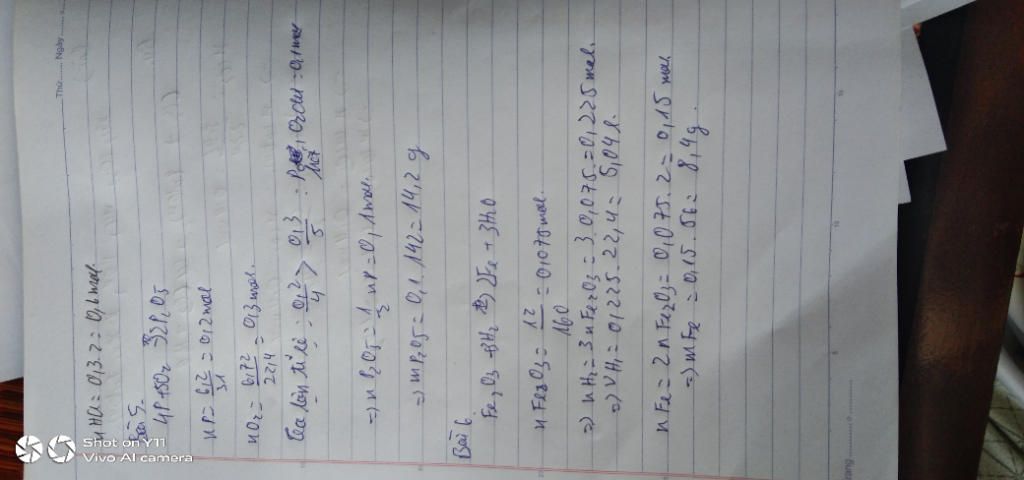 Thứ ...... Ngày ......
nHCl = 0,3.2 = 0,6 mol.
Bài 5.
4P + 5O2 → 2P2O5
nP = 6,2/31 = 0,2 mol
nO2 = 6,72/22,4 = 0,3 mol.
lập tỉ lệ: 0,2/4 > 0,3/5 : hết
=> nP2O5 = 1/2 nP = 0,1 mol.
=> mP2O5 = 0,1.142 = 14,2 g
Bài 6
Fe2O3 + 3H2 → 2Fe + 3H2O
nFe2O3 = 12/160 = 0,075 mol.
=> nH2 = 3nFe2O3 = 3.0,075 = 0,225 mol.
=> VH2 = 0,225.22,4 = 5,04 l.
nFe = 2nFe2O3 = 0,075.2 = 0,15 mol
=> mFe = 0,15.56 = 8,4g.
Shot on Y11
Vivo AI camera